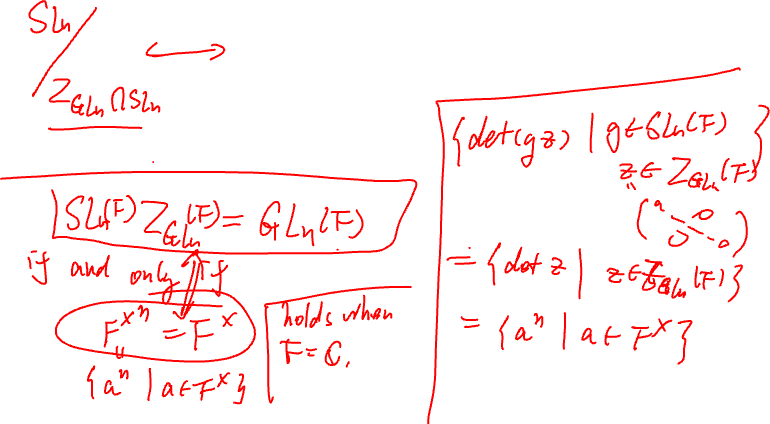 SLn /
Z_{GLn} ∩ SLn ⟷
SLn(F) Z_{GLn}(F) = GLn(F)
if and only if
F^{×n} = F^×
{a^n | a ∈ F^×}
holds when
F = C.
{det(gz) | g ∈ SLn(F)
z ∈ Z_{GLn}(F)}
(a 0
0 a)
= {det z | z ∈ Z_{GLn}(F)}
= {a^n | a ∈ F^×}